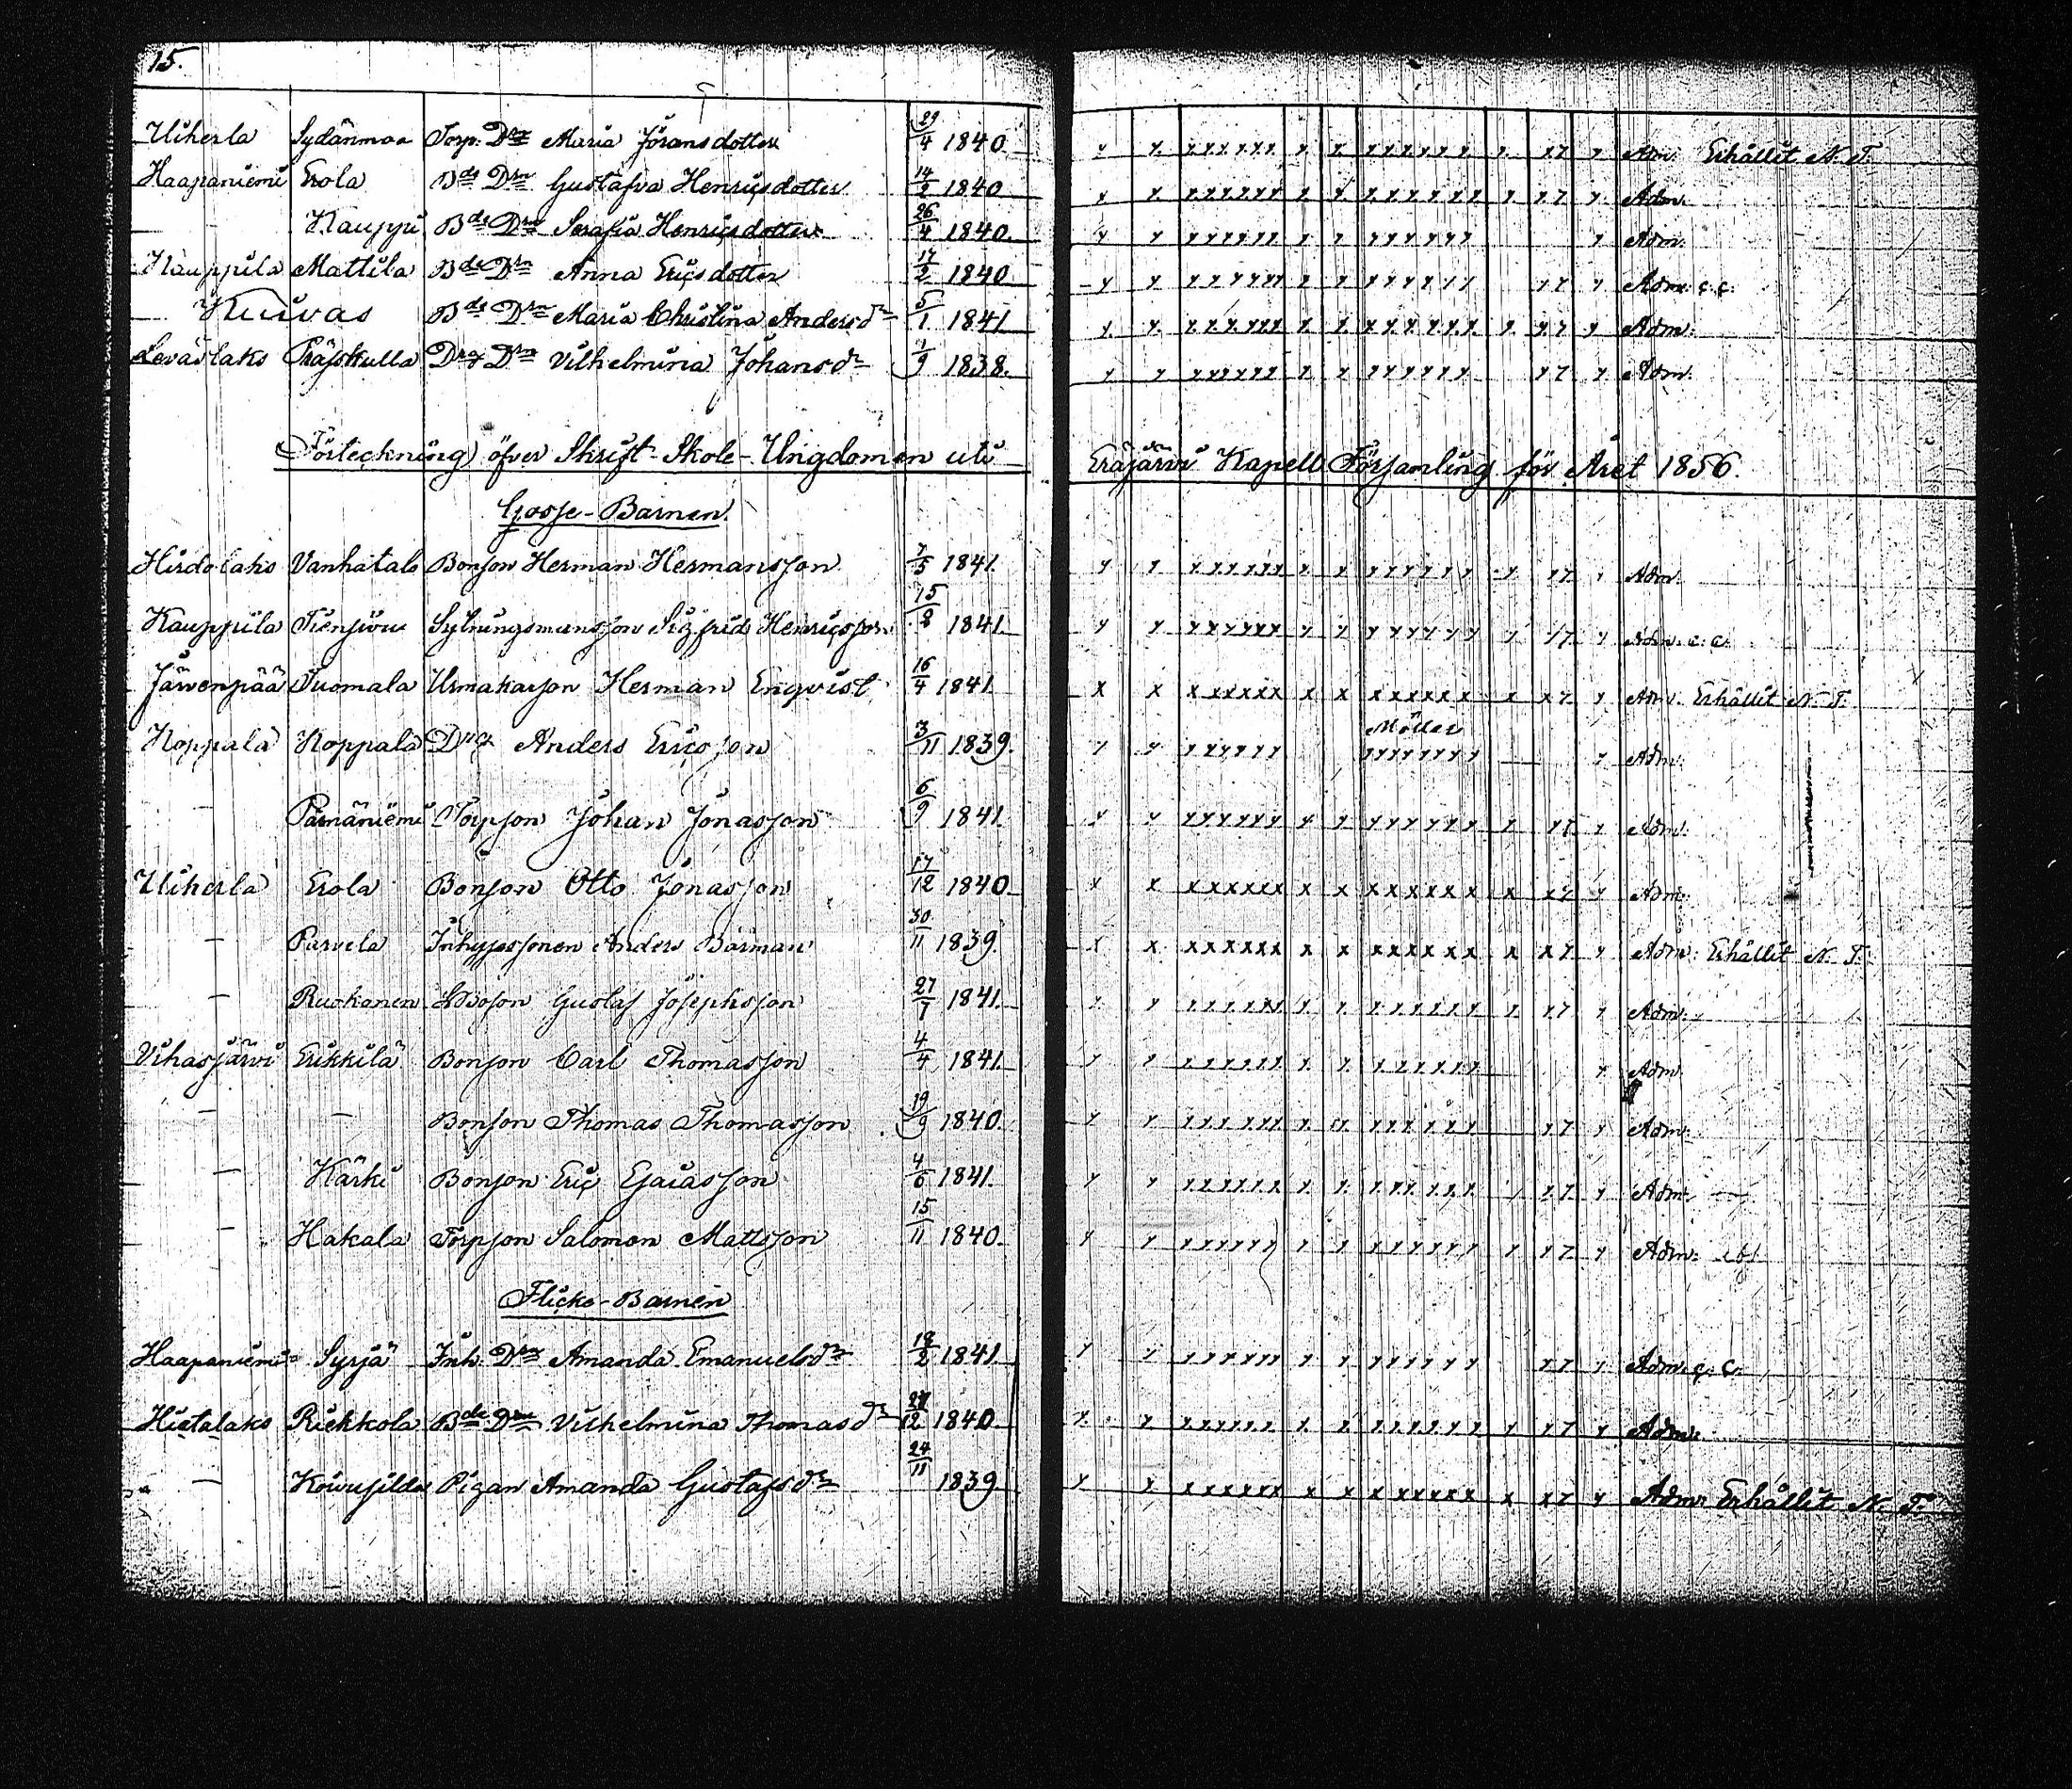 15.
Uiherla Sydänmaa Torp. Dtr Maria Göransdotter 29/4 1840 x x xxxxxx x x xxxxxx x x7 x Adm. Erhållit N. T.
Haapaniemi Erola Bde Dtr Gustafva Henricsdotter 14/2 1840 x x xxxxxx x x xxxxxxx x x7 x Adm.
— Kauppi Bde Dtr Serafia Henricsdotter 26/4 1840. x x xxxxxx x x xxxxxx x Adm.
Kauppila Mattila Bde Dtr Anna Ericsdotter 17/2 1840 x x xxxxxx x x xxxxxx x7 x Adm. c. c.
— Kuivas Bde Dtr Maria Christina Andersdr 5/1 1841 x x xxxxxx x x xxxxxxx x x7 x Adm.
Leväslaks Dräg Dtr Vilhelmina Johansdr 1/9 1838. x x xxxxxx x x xxxxxx x7 x Adm.
Förteckning öfver Skrift-Skole-Ungdomen uti Eräjärvi Kapell Församling för Året 1856.
Gosse-Barnen.
Hirdolaks Vanhatalo Bonson Herman Hermansson 7/5 1841. x x xxxxxx x x xxxxxxx x x7 x Adm.
Kauppila Sytningsmansson Sigfrid Henricsson 15/8 1841. x x xxxxxx x x xxxxxxx x x7 x Adm. c. c.
Järvenpää Tuomala Urmakarson Herman Enqvist 16/4 1841. x x xxxxxx x x xxxxxx x x7 x Adm. Erhållit N. T.
Hoppala Hoppala Drg Anders Ericsson 3/11 1839. x x xxxxxx Möller xxxxxxxx — x Adm.
Pärnäniemi Torpson Johan Jonasson 6/9 1841. x x xxxxxx x x xxxxxxx x x7 x Adm.
Uiherla Erola Bonson Otto Jonasson 17/12 1840. x x xxxxxx x x xxxxxxx x x7 x Adm.
— Parvela Inhysessonen Anders Barman 30/11 1839. x x xxxxxx x x xxxxxxx x x7 x Adm. Erhållit N. T.
— Ruokonen Gustaf Josephsson 27/7 1841. x x xxxxxx x x xxxxxxx x x7 x Adm.
Vihasjärvi Erikkilä Bonson Carl Thomasson 4/4 1841. x x xxxxxx x x xxxxxxx x Adm.
— — Bonson Thomas Thomasson 19/9 1840. x x xxxxxx x x xxxxxxx x7 x Adm.
— Kärki Bonson Eric Esaiasson 4/6 1841. x x xxxxxx x x xxxxxxx x x7 x Adm. —
— Hakala Torpson Salomon Mattsson 15/11 1840. x x xxxxxx x x xxxxxxx x x7 x Adm.
Flicke-Barnen
Haapaniemi Syrjä Inh. Dtr Amanda Emanuelsdr 18/2 1841. x x xxxxxx x x xxxxxxx x7 x Adm. c. c.
Hietalaks Riekkola Bde Dtr Vilhelmina Thomasdr 12 1840. x x xxxxxx x x xxxxxxx x x7 x Adm.
— Pigan Amanda Gustafsdr 24/11 1839 x x xxxxxx x x xxxxxxx x x7 x Adm. Erhållit N. T.